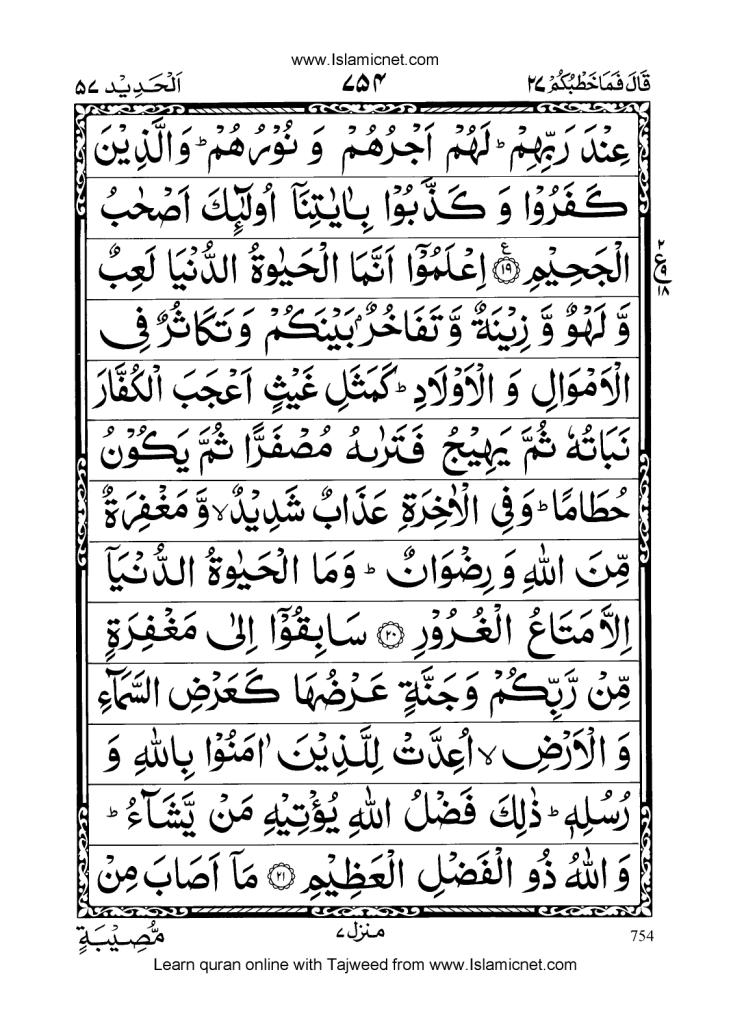 www.Islamicnet.com
قَالَ فَمَا خَطْبُكُمْ ٢٧ ٧٥٤ اَلْحَدِیْد ٥٧
عِنْدَ رَبِّهِمْ ؕ لَهُمْ اَجْرُهُمْ وَ نُوْرُهُمْ ؕ وَالَّذِیْنَ
كَفَرُوْا وَ كَذَّبُوْا بِاٰیٰتِنَاۤ اُولٰٓئِكَ اَصْحٰبُ
الْجَحِیْمِ ﴿۱۹﴾ ع اِعْلَمُوْۤا اَنَّمَا الْحَیٰوةُ الدُّنْیَا لَعِبٌ
٢ ع ٩ ١٨
وَّ لَهْوٌ وَّ زِیْنَةٌ وَّ تَفَاخُرٌۢ بَیْنَكُمْ وَ تَكَاثُرٌ فِی
الْاَمْوَالِ وَ الْاَوْلَادِ ؕ كَمَثَلِ غَیْثٍ اَعْجَبَ الْكُفَّارَ
نَبَاتُهٗ ثُمَّ یَهِیْجُ فَتَرٰىهُ مُصْفَرًّا ثُمَّ یَكُوْنُ
حُطَامًا ؕ وَفِی الْاٰخِرَةِ عَذَابٌ شَدِیْدٌ ۙ وَّ مَغْفِرَةٌ
مِّنَ اللّٰهِ وَ رِضْوَانٌ ؕ وَمَا الْحَیٰوةُ الدُّنْیَاۤ
اِلَّا مَتَاعُ الْغُرُوْرِ ﴿۲۰﴾ سَابِقُوْۤا اِلٰی مَغْفِرَةٍ
مِّنْ رَّبِّكُمْ وَجَنَّةٍ عَرْضُهَا كَعَرْضِ السَّمَآءِ
وَ الْاَرْضِ ۙ اُعِدَّتْ لِلَّذِیْنَ اٰمَنُوْا بِاللّٰهِ وَ
رُسُلِهٖ ؕ ذٰلِكَ فَضْلُ اللّٰهِ یُؤْتِیْهِ مَنْ یَّشَآءُ ؕ
وَ اللّٰهُ ذُو الْفَضْلِ الْعَظِیْمِ ﴿۲۱﴾ مَاۤ اَصَابَ مِنْ
754 منزل ٧ مُّصِیْبَةٍ
Learn quran online with Tajweed from www.Islamicnet.com